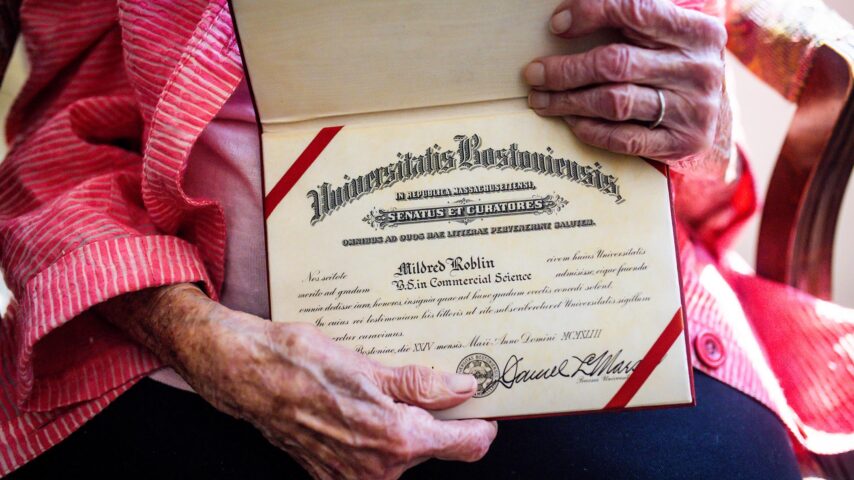 Universitatis Bostoniensis,
IN REPUBLICA MASSACHUSETTENSI,
SENATUS ET CURATORES
OMNIBUS AD QUOS HAE LITTERAE PERVENERINT SALUTEM.
Nos scitote Mildred Roblin civem hanus Universitatis
merito ad gradum B.S. in Commercial Science admisisse, eique
omnia dedisse iura, honores, insignia quae ad hunc gradum evectis concedi solent.
In cuius rei testimonium his litteris ut rite subscriberetur et Universitatis sigillum
curavimus.
Bostoniae, die XXIV mensis Maii Anno Domini MCMXLIII
Daniel L Mars